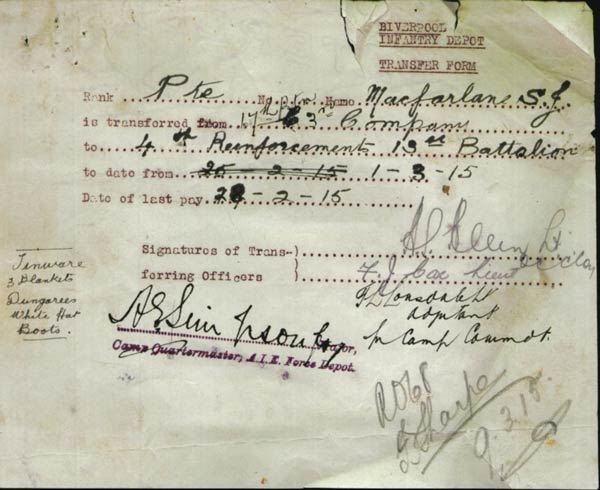 BIVERPOOL
INFANTRY DEPOT
TRANSFER FORM
Rank Pte No Name Macfarlane S.J
is transferred from 17th 3rd Company
to 4th Reinforcements 13th Battalion
to date from 25-2-15 1-3-15
Date of last pay 28-2-15
Signatures of Trans-)
ferring Officers )
F. J. Cox Lieut
Tinware
3 Blankets
Dungarees
White Hat
Boots.
A E Simpson
Major,
Camp Quartermaster, A.I.E. Force Depot.
Adjutant
Camp Commdt.
Sharpe
9.3.15.